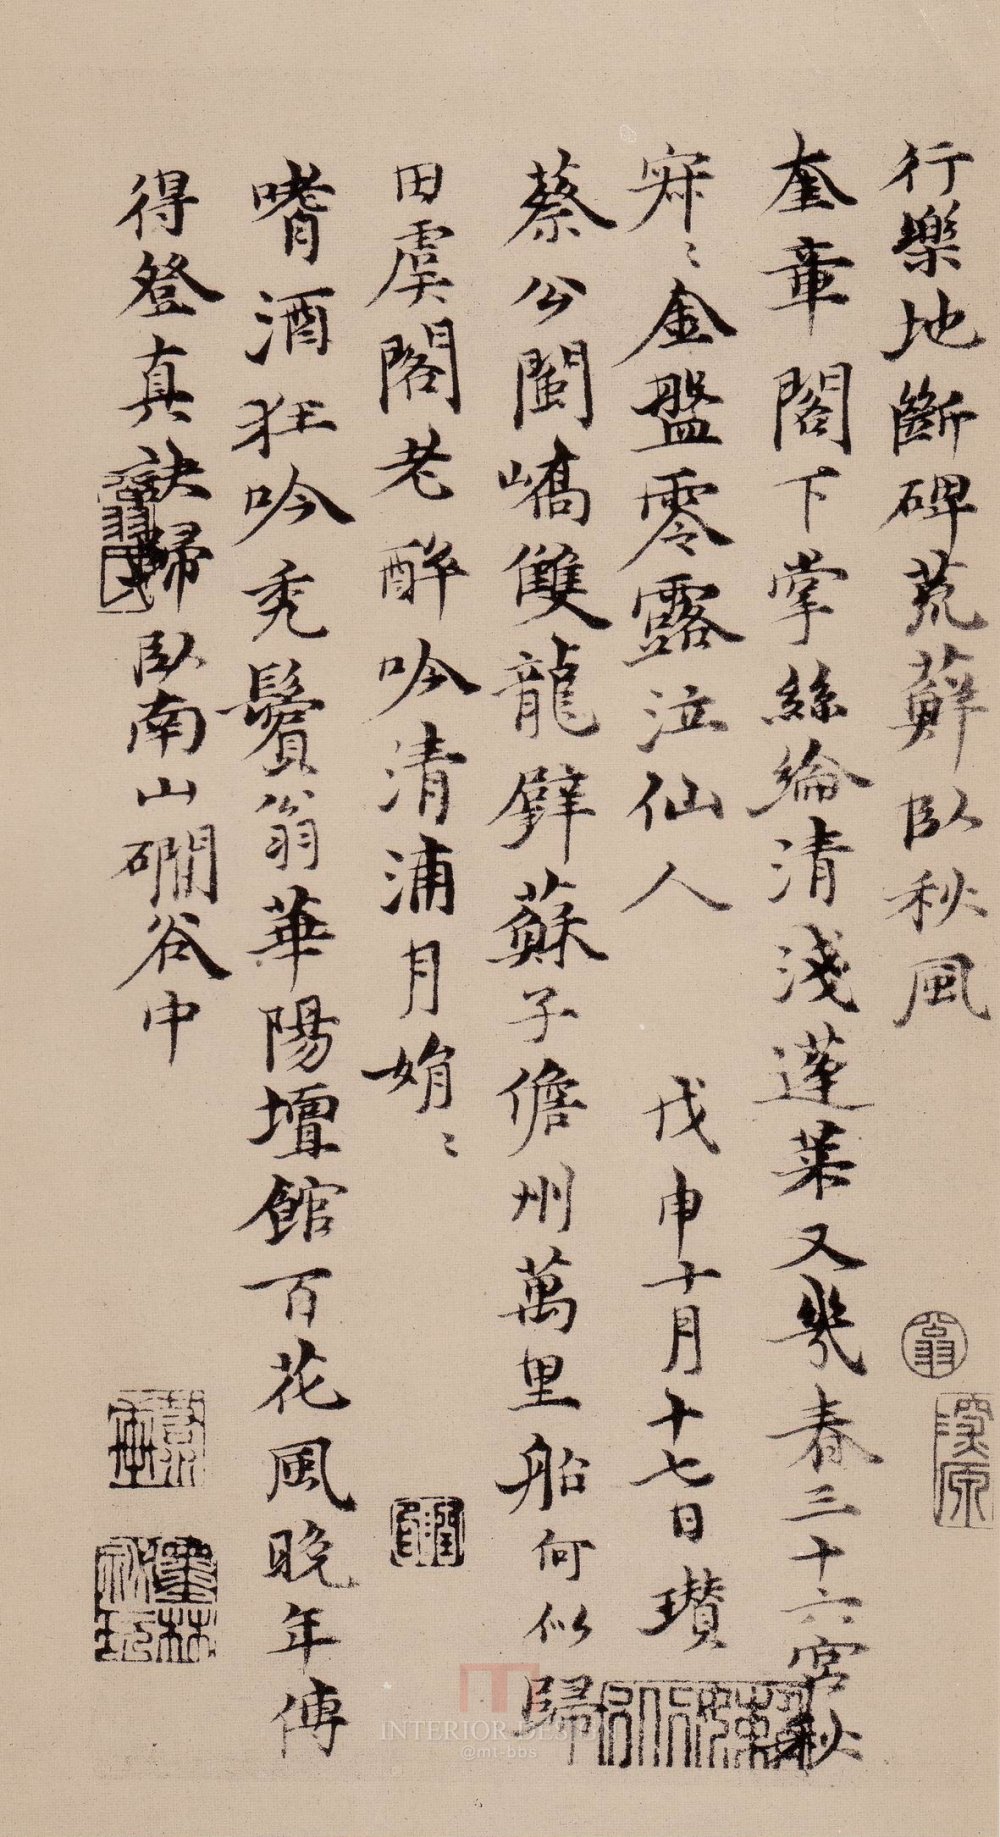 行樂地斷碑荒蘚臥秋風
奎章閣下掌絲綸清淺蓬萊又幾春三十六宮秋
寂〻金盤零露泣仙人　戊申十月十七日瓚
蔡公閩嶠雙龍璧蘇子儋州萬里船何似歸
田虞閣老醉吟清浦月娟〻
嗜酒狂吟禿鬢翁華陽壇館百花風晚年傳
得登真訣歸臥南山磵谷中
INTERIOR DES
@mt-bbs